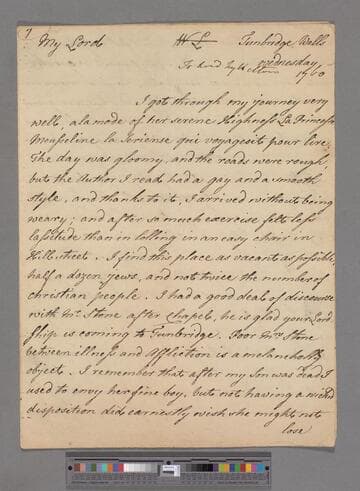 7
My Lord
Tunbridge Wells
Wednesday
1760
I got through my journey very
well, a la mode of her serene Highness La Princesse
qui voyagesit pour lire.
The day was gloomy, and the roads were rough,
but the Author I read had a gay and a smooth
style, and thanks to it, I arrived without being
weary; and after so much exercise felt less
lassitude than in lolling in an easy chair in
Hill street. I find this place as vacant as possible,
half a dozen jews, and not twice the number of
christian people. I had a good deal of discourse
with Mr. Stone after Chapel, he is glad your Lord
ship is coming to Tunbridge. Poor Mrs Stone
between illness and Affliction is a melancholly
object. I remember that after my son was dead I
used to envy her fine boy, but not having a wicked
disposition did earnestly wish she might not
lose